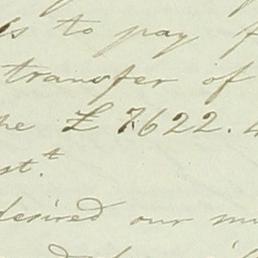 to pay
transfer of
he £ 7622. 4
st.t
desired our